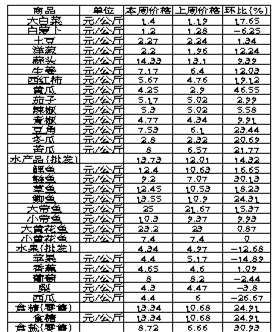 商品 单位 本周价格 上周价格 环比(%)
大白菜 元/公斤 1.4 1.19 17.65
白萝卜 元/公斤 1.2 1.28 -6.25
土豆 元/公斤 2.27 2.24 1.34
洋葱 元/公斤 2.2 1.96 12.24
蒜头 元/公斤 14.33 13.1 9.39
生姜 元/公斤 7.17 6.4 12.03
西红柿 元/公斤 5.67 4.76 19.12
黄瓜 元/公斤 4.25 2.9 46.55
茄子 元/公斤 5.17 5.02 2.99
辣椒 元/公斤 5.3 5.02 5.58
青椒 元/公斤 4.77 4.34 9.91
豆角 元/公斤 7.53 6.1 23.44
冬瓜 元/公斤 2.8 2.32 20.69
苦瓜 元/公斤 8 6.57 21.77
水产品(批发) 13.73 12.01 14.32
鲤鱼 元/公斤 12.4 10.63 16.65
鲢鱼 元/公斤 9.2 7.07 30.13
草鱼 元/公斤 12.45 10.53 18.23
鲫鱼 元/公斤 13.55 10.9 24.31
大带鱼 元/公斤 25 21.67 15.37
小带鱼 元/公斤 10.3 9.37 9.93
大黄花鱼 元/公斤 23.2 23 0.87
小黄花鱼 元/公斤 7.4 7.4 0
水果(批发) 4.34 4.97 -12.68
苹果 元/公斤 4.4 5.17 -14.89
香蕉 元/公斤 4.65 4.6 1.09
葡萄 元/公斤 8 8.2 -2.44
梨 元/公斤 4.3 4.47 -3.8
西瓜 元/公斤 4.4 6 -26.67
食糖(零售) 13.34 10.68 24.91
食糖 元/公斤 13.34 10.68 24.91
食盐(零售) 8.72 6.66 30.93